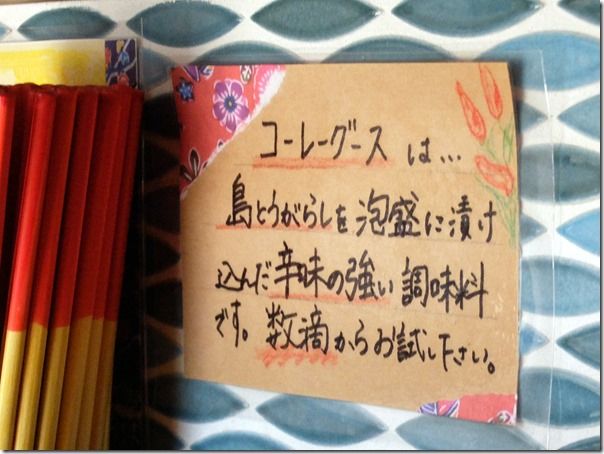 コーレーグース は…
島とうがらしを泡盛に漬け
込んだ辛味の強い調味料
です。数滴からお試し下さい。